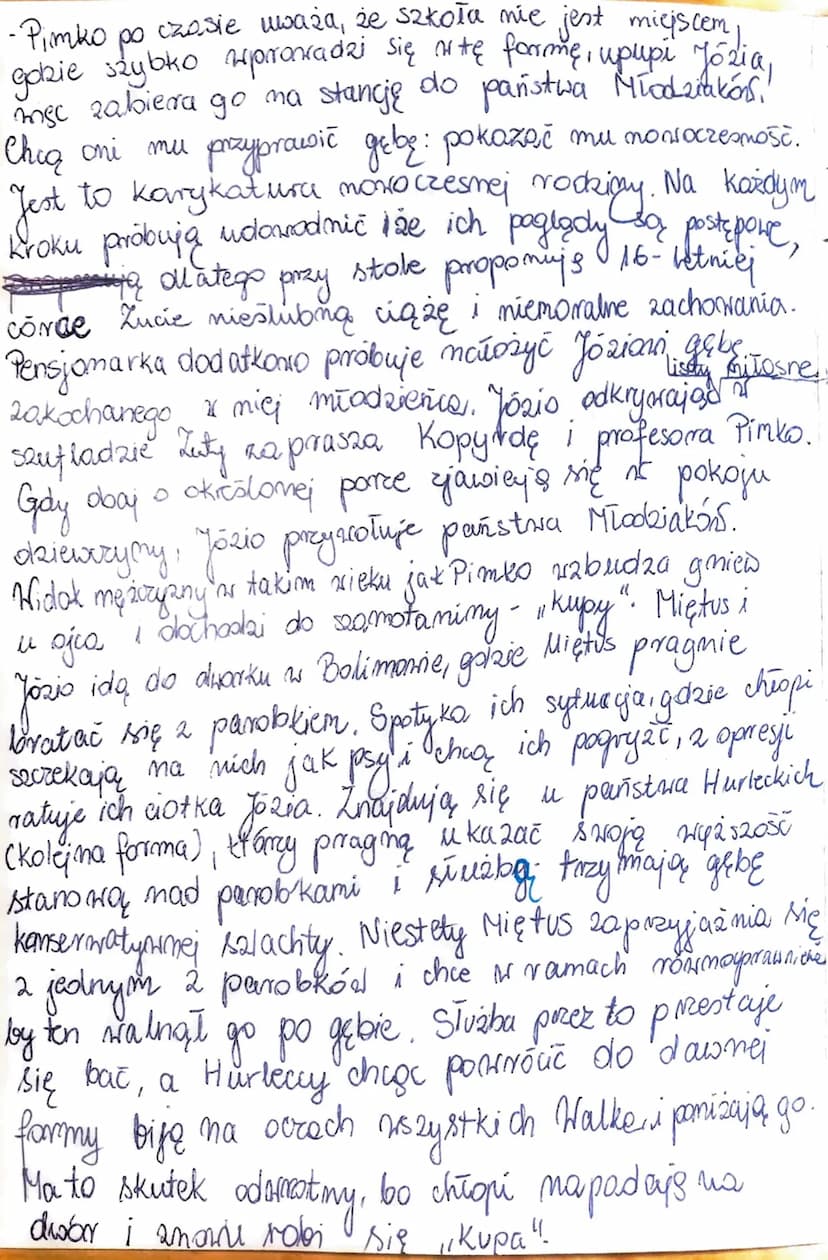 - Pimko po czasie uważa, że szkoła nie jest miejscem,
gdzie szybko wprowadzi się w tę formę, upupi Józia,
więc zabiera go na stancję do państwa Młodziaków.
Chcą oni mu przyprawić gębę: pokazać mu nowoczesność.
Jest to karykatura nowoczesnej rodziny. Na każdym
kroku próbują udowodnić że ich poglądy są postępowe,
dlatego przy stole proponują 16-letniej
córce Zucie nieślubną ciążę i niemoralne zachowania.
Pensjonarka dodatkowo próbuje nałożyć Józiowi gębę
zakochanego w niej młodzieńca. Józio odkrywając listy miłosne w
szufladzie Zuty zaprasza Kopyrdę i profesora Pimko.
Gdy obaj o określonej porze zjawieją się w pokoju
dziewczyny, Józio przywołuje państwa Młodziaków.
Widok mężczyzny w takim wieku jak Pimko wzbudza gniew
u ojca i dochodzi do szamotaniny - „kupy". Miętus i
Józio idą do dworku w Bolimowie, gdzie Miętus pragnie
bratać się z parobkiem. Spotyka ich sytuacja, gdzie chłopi
szczekają na nich jak psy i chcą ich pogryźć, z opresji
ratuje ich ciotka Józia. Znajdują się u państwa Hurleckich
(kolejna forma), którzy pragną ukazać swoją wyższość
stanową nad parobkami i służbą. trzymają gębę
konserwatywnej szlachty. Niestety Miętus zaprzyjaźnia się
z jednym z parobków i chce w ramach
by ten walnął go po gębie. Służba przez to przestaje
się bać, a Hurleccy chcąc powrócić do dawnej
formy biją na oczach wszystkich Walka i poniżają go.
Ma to skutek odwrotny, bo chłopi napadają na
dwór i znowu robi się „kupa".